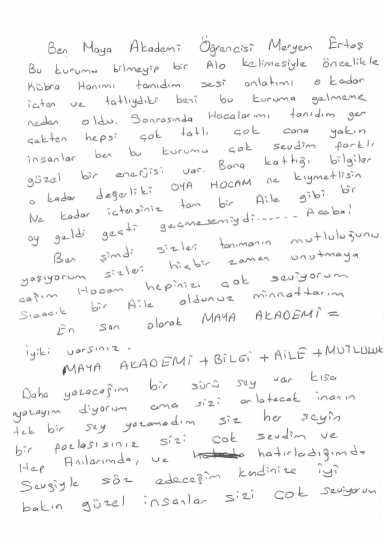 Ben Maya Akademi Öğrencisi Meryem Ertaş
Bu kurumu bilmeyip bir Alo kelimesiyle öncelikle
Kübra Hanımı tanıdım sesi anlatımı o kadar
içten ve tatlıydıki beni bu kuruma gelmeme
neden oldu. Sonrasında Hocalarımı tanıdım ger
çekten hepsi çok tatlı çok cana yakın
insanlar ben bu kurumu çok sevdim farklı
güzel bir enerjisi var. Bana kattığı bilgiler
o kadar değerliki OYA HOCAM ne kıymetlisin
Ne kadar içtensiniz tam bir Aile gibi bir
ay geldi geçti geçmesemiydi...... Acaba!
Ben şimdi sizleri tanımanın mutluluğunu
yaşıyorum sizleri hiçbir zaman unutmaya
cağım Hocam hepinizi çok seviyorum
Sıcacık bir Aile oldunuz minnattarım
En son olarak MAYA AKADEMİ =
iyiki varsınız.
MAYA AKADEMİ + BİLGİ + AİLE + MUTLULUK
Daha yazacağım bir sürü şey var kısa
yazayım diyorum ama sizi anlatacak inanın
tek bir şey yazamadım siz her şeyin
bir fazlasısınız sizi çok sevdim ve
Hep Anılarımda, ve hatırladığımda
Sevgiyle söz edeceğim kendinize iyi
bakın güzel insanlar sizi çok seviyorum